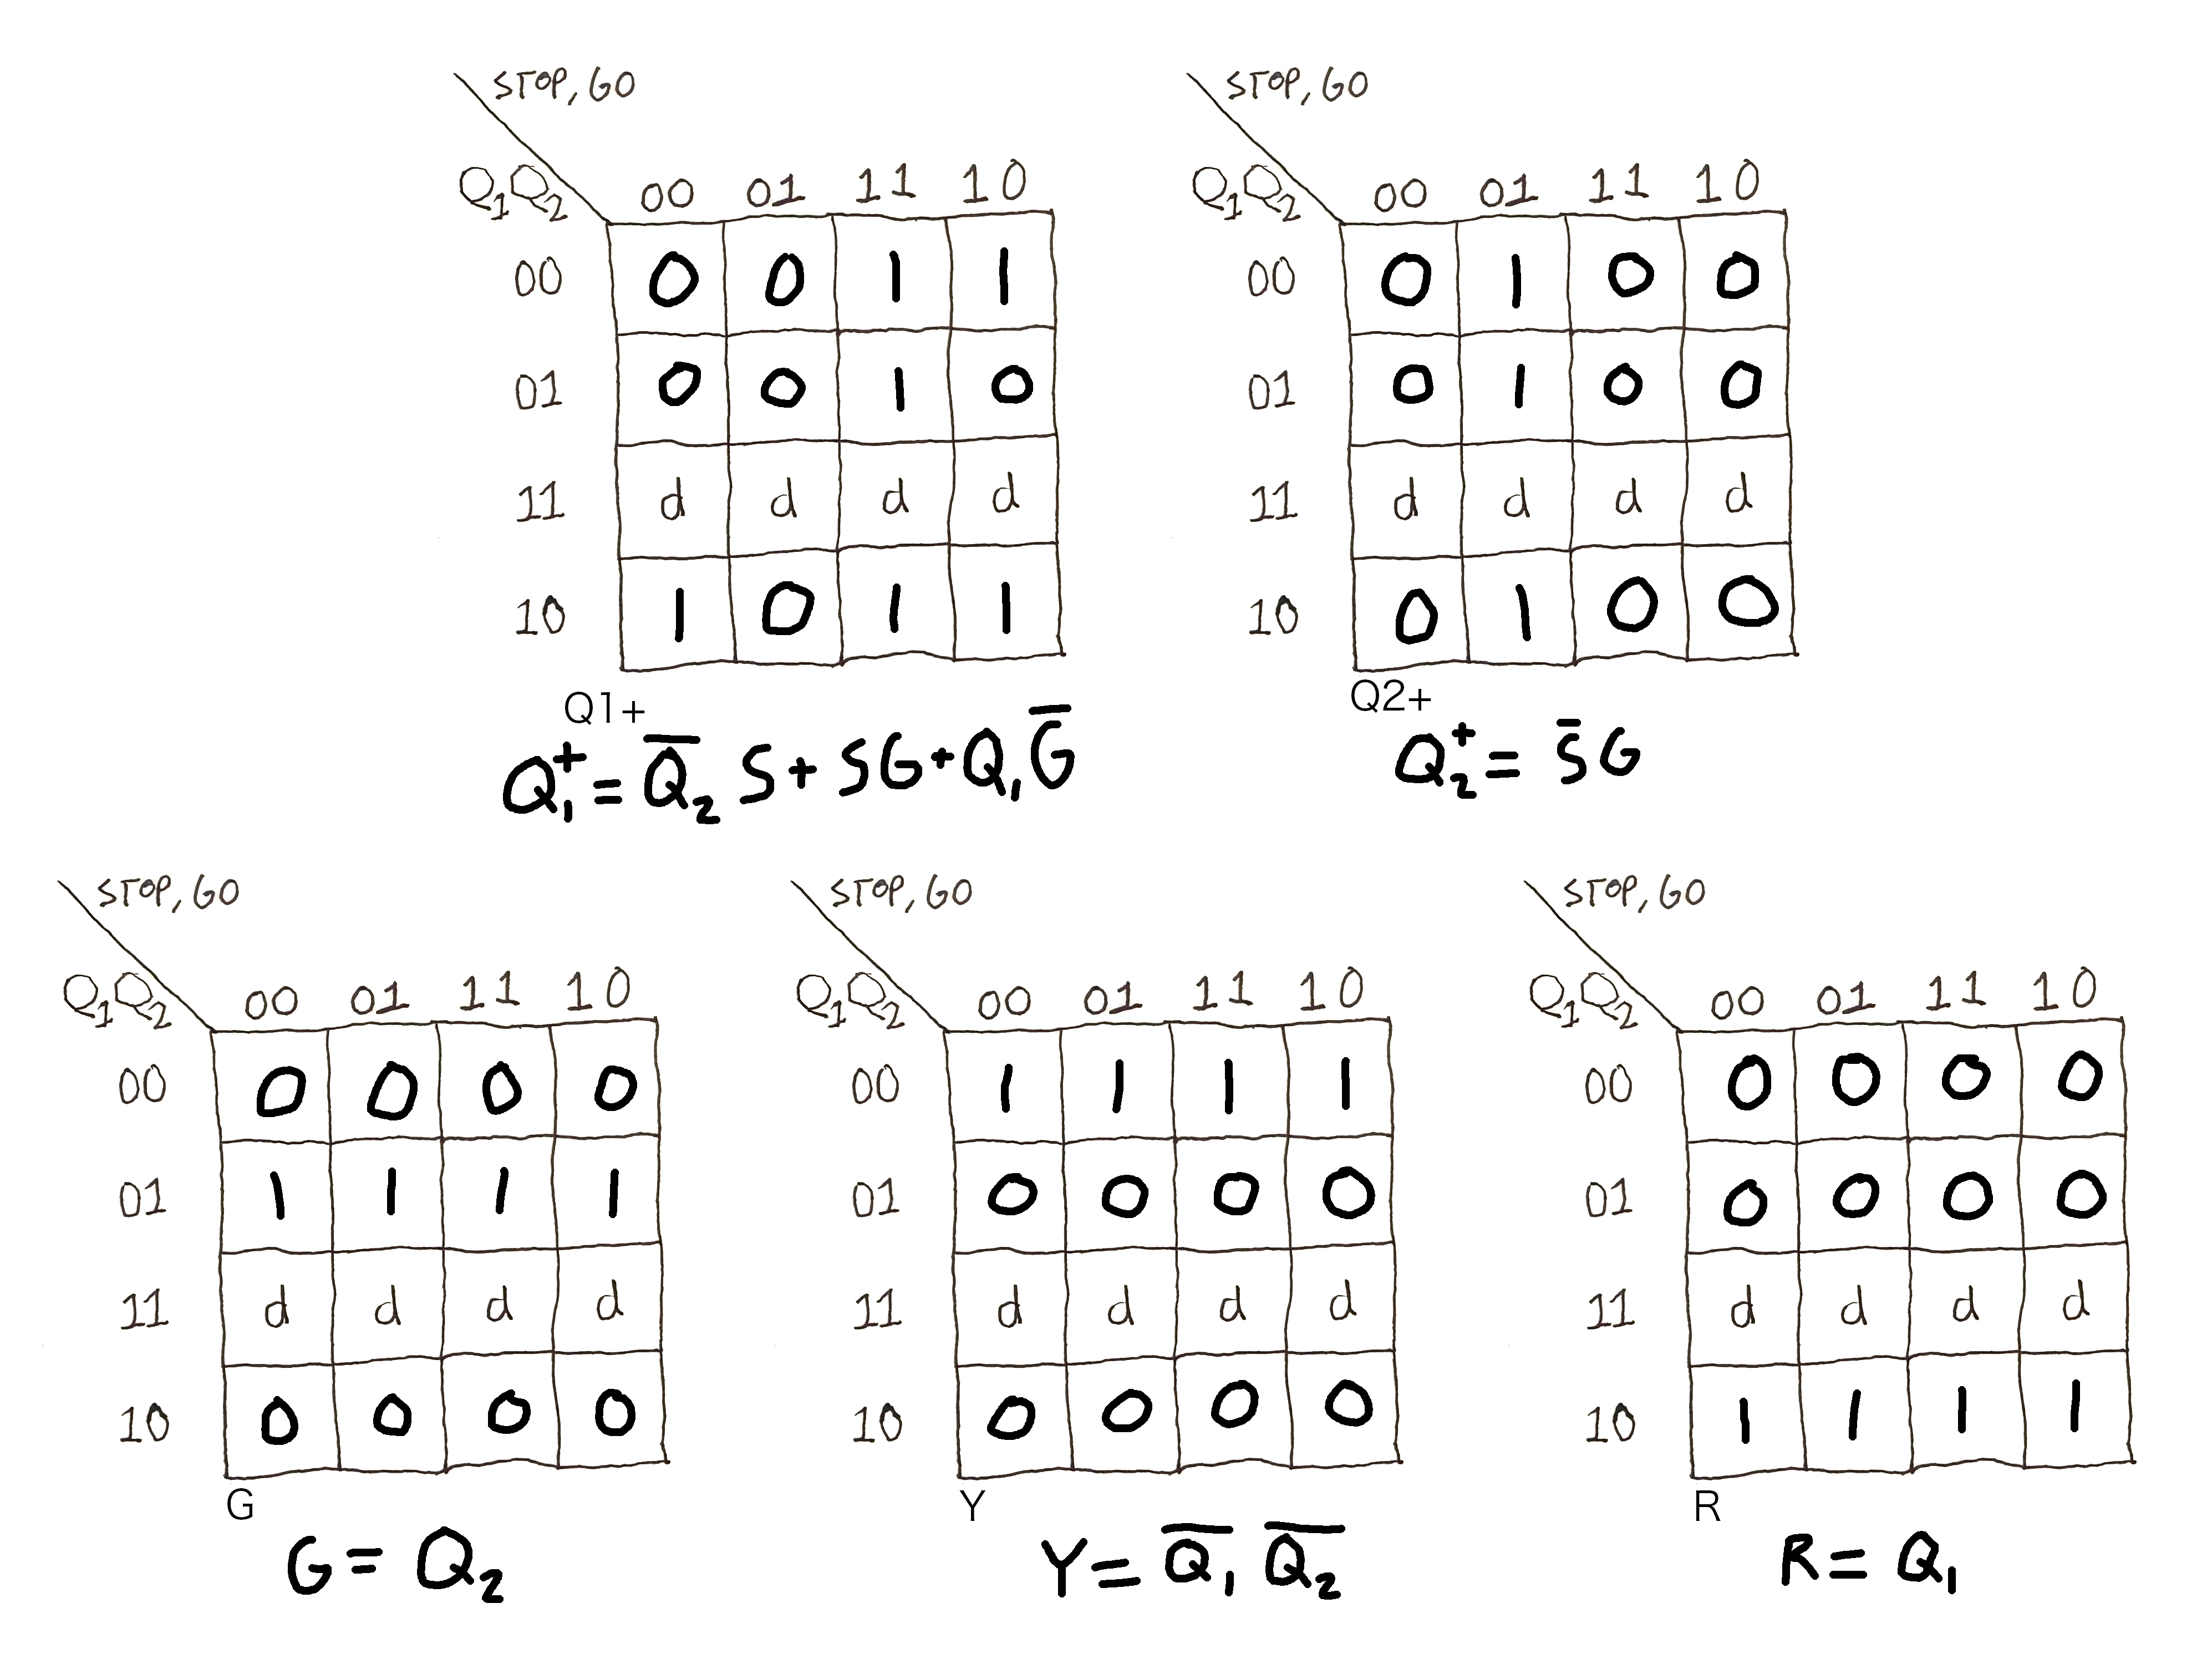 STOP, GO
Q₁Q₂ 00 01 11 10
00 0 0 1 1
01 0 0 1 0
11 d d d d
10 1 0 1 1
Q1+
Q₁⁺ = Q̅₂ S + SG + Q₁G̅
STOP, GO
Q₁Q₂ 00 01 11 10
00 0 1 0 0
01 0 1 0 0
11 d d d d
10 0 1 0 0
Q2+
Q₂⁺ = S̅G
STOP, GO
Q₁Q₂ 00 01 11 10
00 0 0 0 0
01 1 1 1 1
11 d d d d
10 0 0 0 0
G
G = Q₂
STOP, GO
Q₁Q₂ 00 01 11 10
00 1 1 1 1
01 0 0 0 0
11 d d d d
10 0 0 0 0
Y
Y = Q̅₁ Q̅₂
STOP, GO
Q₁Q₂ 00 01 11 10
00 0 0 0 0
01 0 0 0 0
11 d d d d
10 1 1 1 1
R
R = Q₁